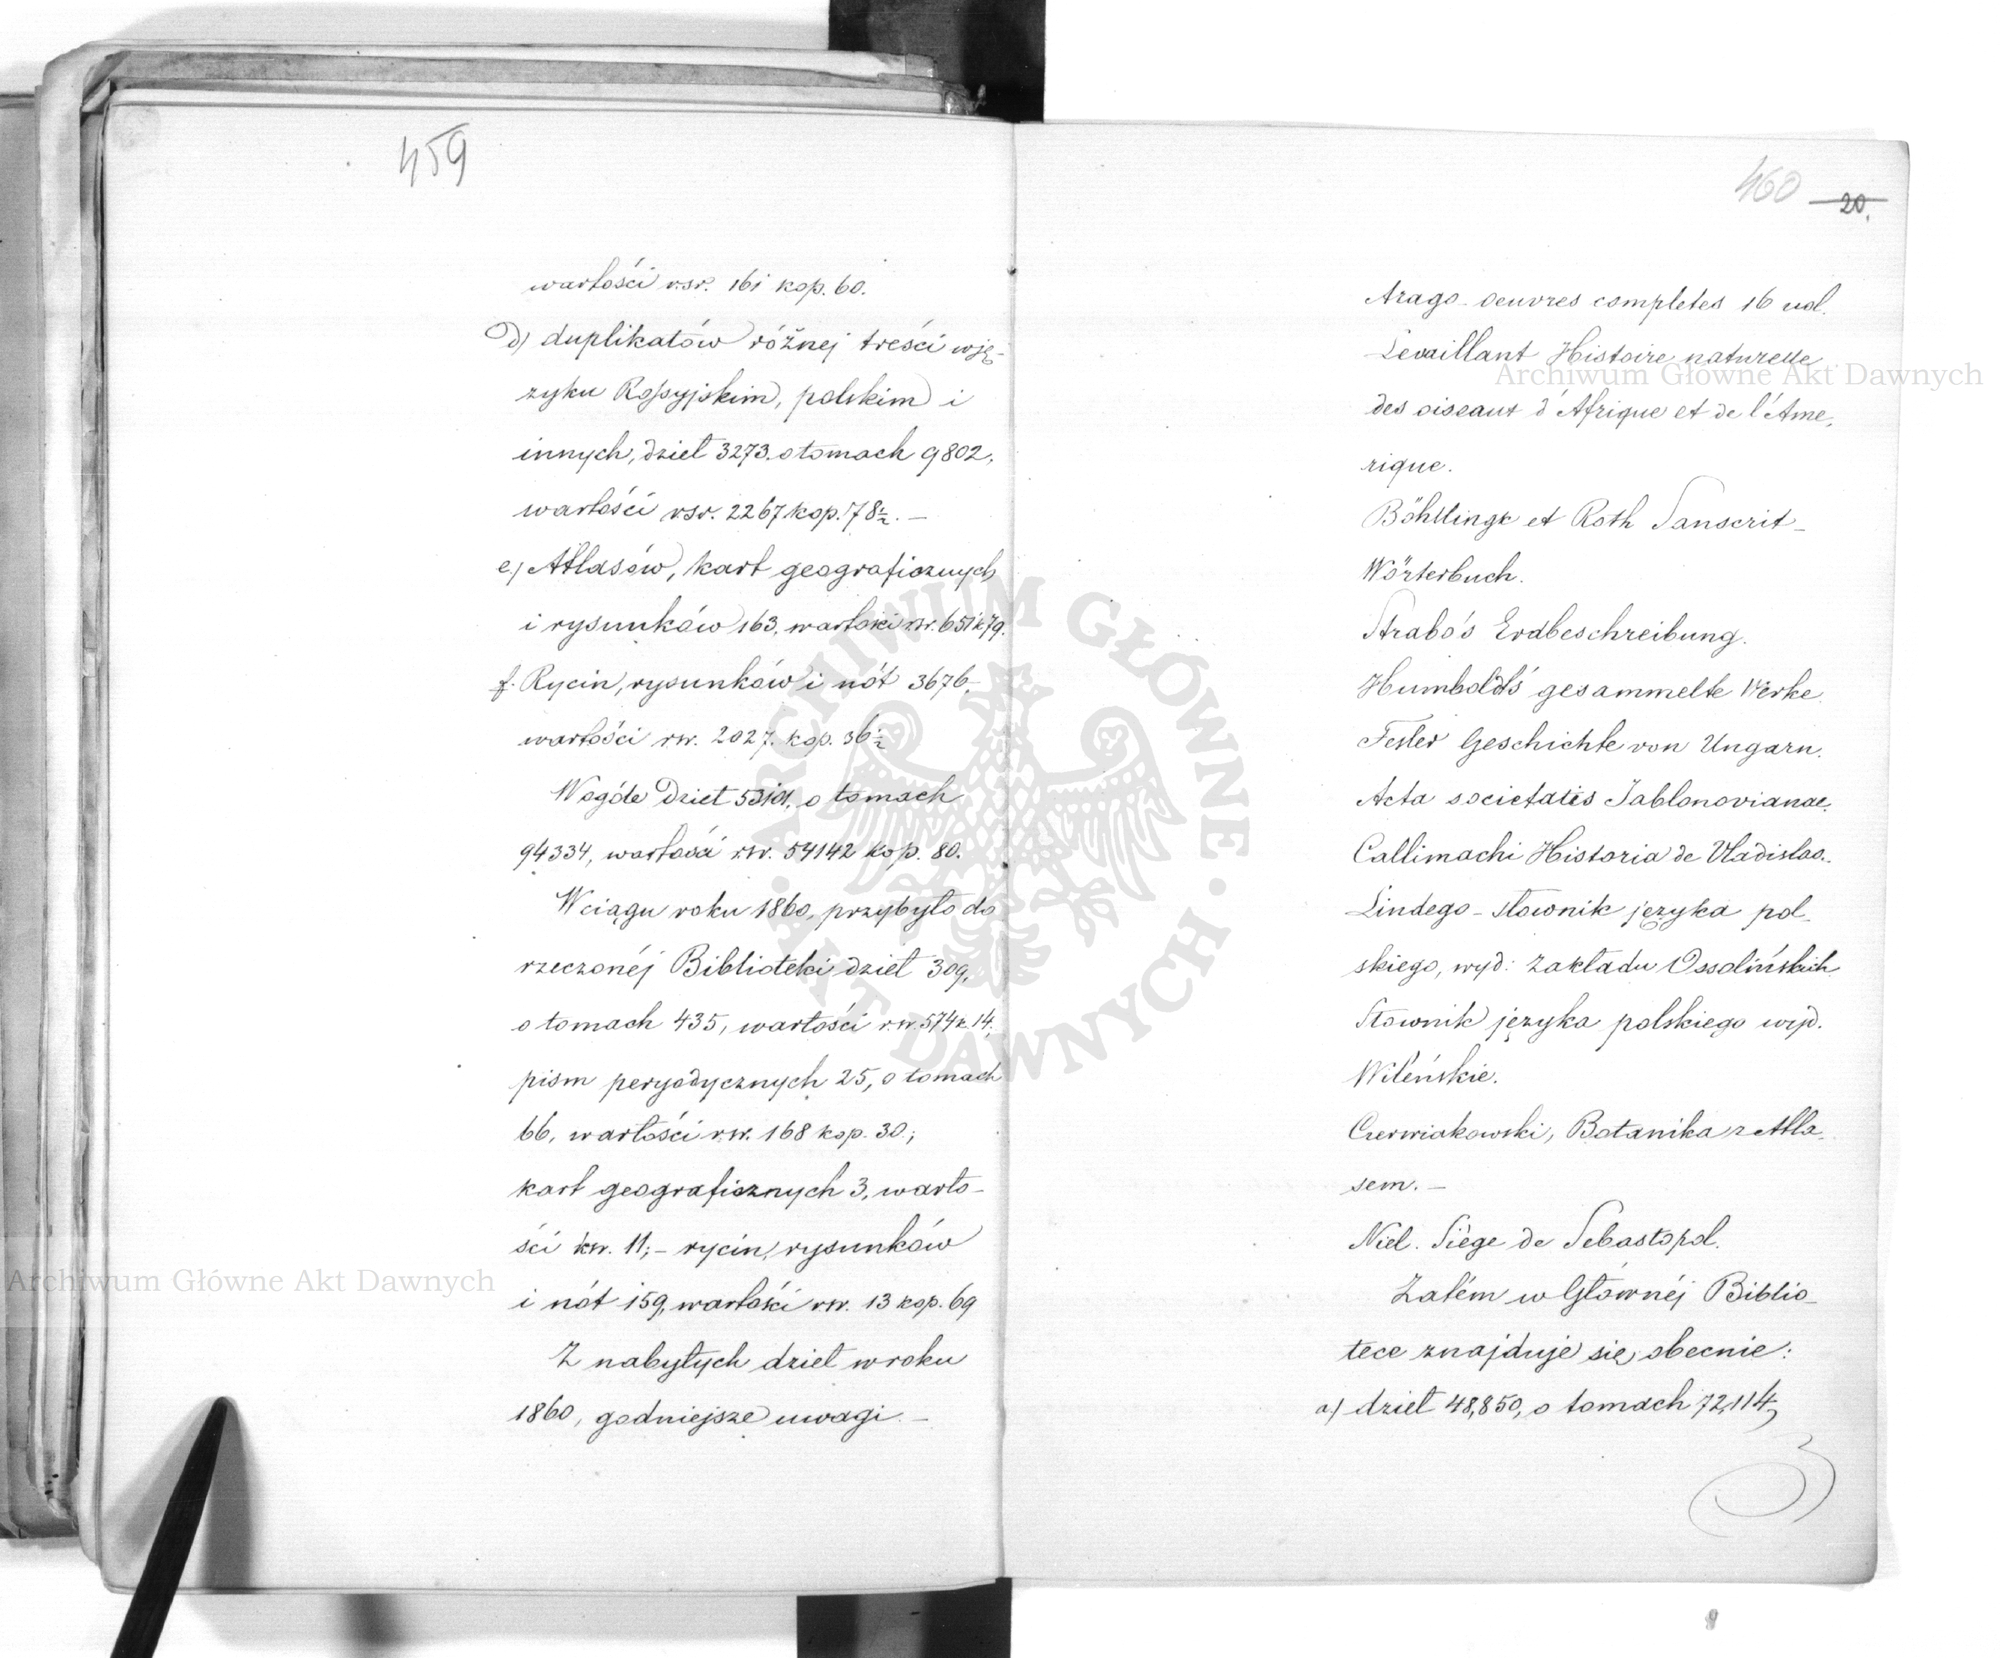 459
wartości rsr. 161 kop. 60.
d) duplikatów różnej treści w ję-
zyku Rossyjskim, polskim i
innych, dzieł 3273. o tomach 9802,
wartości rsr. 2267 kop. 78½. —
e) Atlasów, kart geograficznych
i rysunków 163, wartości rsr. 651 k. 79.
f. Rycin, rysunków i nót 3676,
wartości rsr. 2027. kop. 36½
Wogóle Dzieł o tomach
94334, wartości rsr. 54142 kop. 80.
W ciągu roku 1860, przybyło do
rzeczonéj Biblioteki dzieł 309,
o tomach 435, wartości rsr. 574 k. 14;
pism peryodycznych 25, o tomach
66, wartości rsr. 168 kop. 30.;
kart geograficznych 3, warto-
ści rsr. 11; – rycin, rysunków
i nót 159, wartości rsr. 13 kop. 69
Z nabytych dzieł w roku
1860, godniejsze uwagi. —
460 20.
Arago oeuvres completes 16 vol.
Levaillant Histoire naturelle
des oiseaux d'Afrique et de l'Ame-
rique.
Böhtlingk et Roth Sanscrit-
Wörterbuch.
Strabo's Erdbeschreibung.
Humboldt's gesammelte Werke.
Fesler Geschichte von Ungarn.
Acta societatis Jablonovianae.
Callimachi Historia de Vladislao.
Lindego – słownik języka pol-
skiego, wyd: zakładu Ossolińskich
Słownik języka polskiego wyd.
Wileńskie.
Czerwiakowski, Botanika z Atla-
sem. —
Niel. Siège de Sebastopol.
Zatém w Głównéj Biblio-
tece znajduje się obecnie:
a) dzieł 48,850, o tomach 72,114,
Archiwum Główne Akt Dawnych
Archiwum Główne Akt Dawnych
· ARCHIWUM GŁÓWNE ·
AKT DAWNYCH